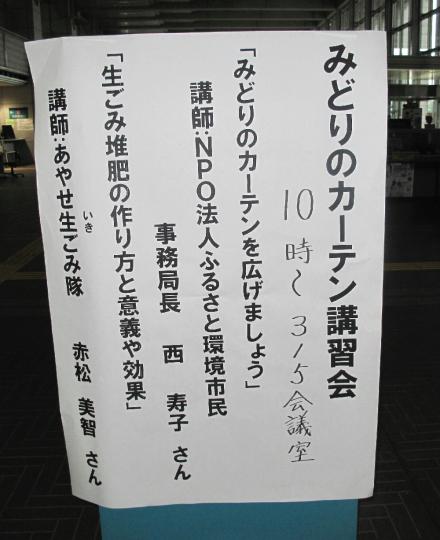 みどりのカーテン講習会
10時～315会議室
「みどりのカーテンを広げましょう」
講師：NPO法人ふるさと環境市民
事務局長 西 寿子 さん
「生ごみ堆肥の作り方と意義や効果」
講師：あやせ生ごみ隊 赤松 美智 さん
いき